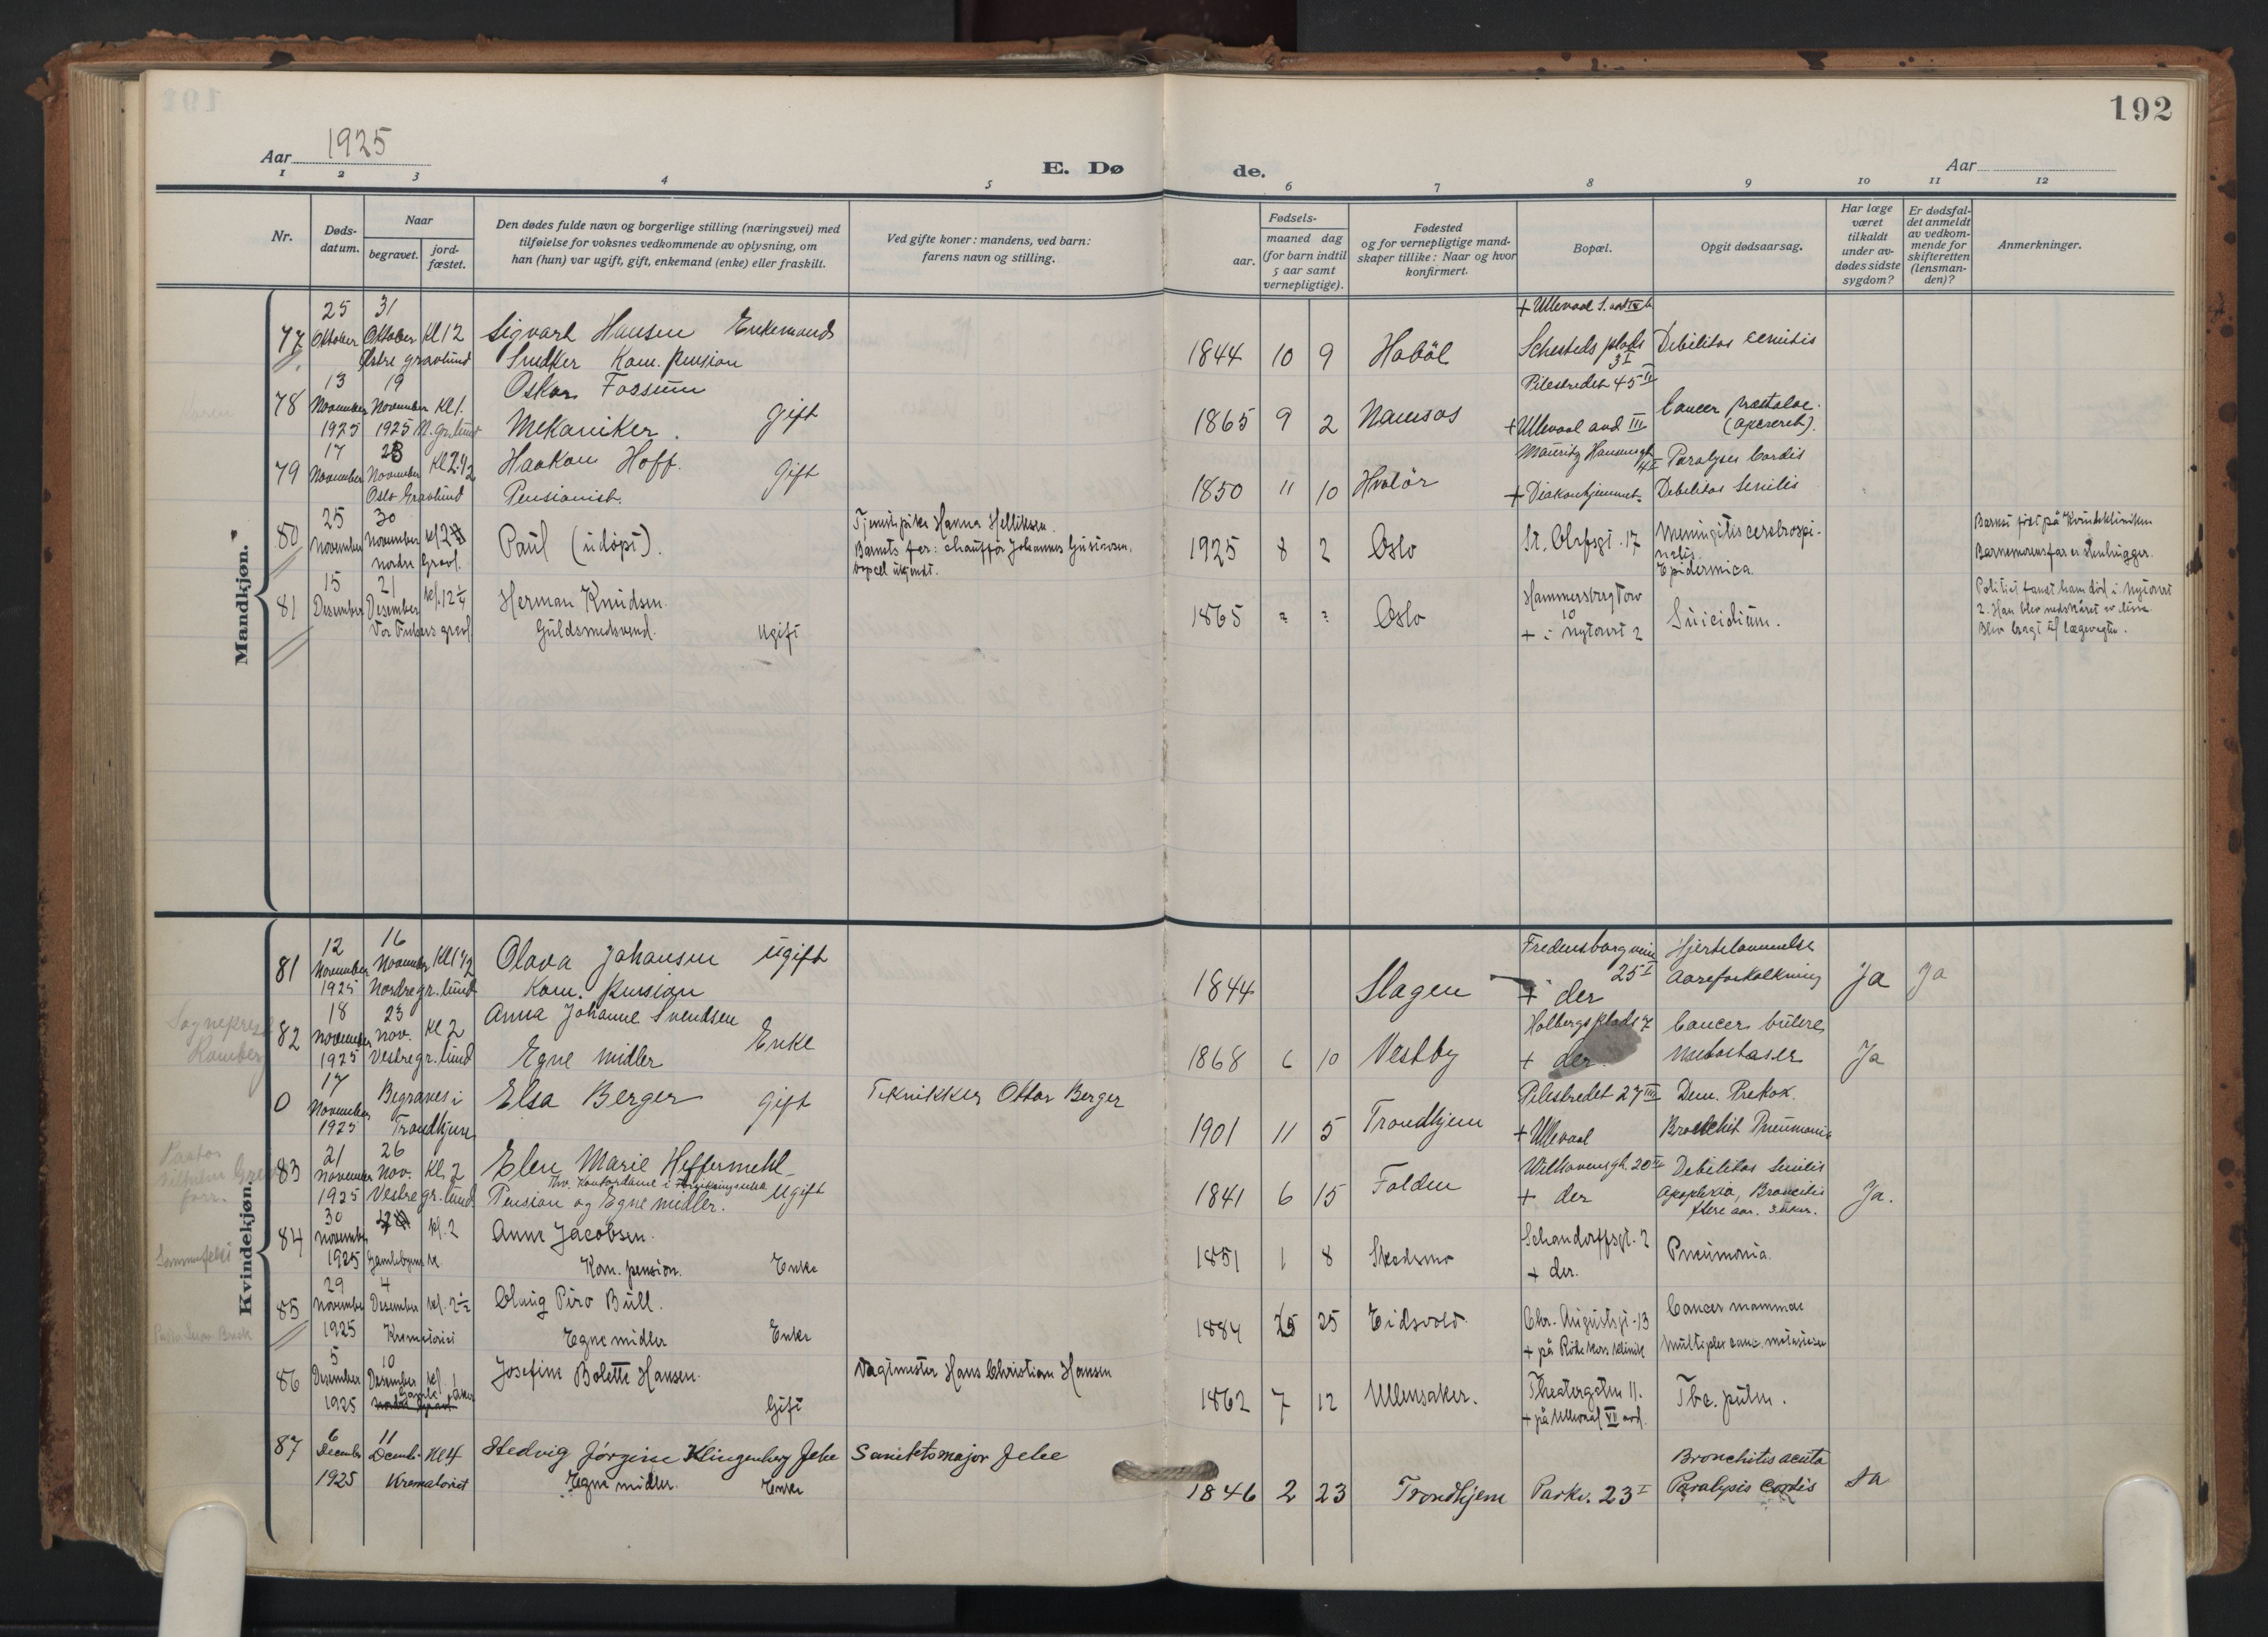 192
Aar 1925
E. Dø
de.
Aar
1 2 3 4 5 6 7 8 9 10 11 12
Nr.
Døds-
datum.
Naar
begravet.
jord-
fæstet.
Den dødes fulde navn og borgerlige stilling (næringsvei) med
tilføielse for voksnes vedkommende av oplysning, om
han (hun) var ugift, gift, enkemand (enke) eller fraskilt.
Ved gifte koner: mandens, ved barn:
farens navn og stilling.
Fødsels-
aar.
maaned dag
(for barn indtil
5 aar samt
vernepligtige).
Fødested
og for vernepligtige mand-
skaper tillike: Naar og hvor
konfirmert.
Bopæl.
Opgit dødsaarsag.
Har læge
været
tilkaldt
under av-
dødes sidste
sygdom?
Er dødsfal-
det anmeldt
av vedkom-
mende for
skifteretten
(lensman-
den)?
Anmerkninger.
Mandkjøn.
25 31 + Ullevaal
77 Oktober Oktober Kl 12 Sigvart Hansen Enkemand
Østre gravlund Snedker Kom. pension 1844 10 9 Haböl Schesteds plads 3 I Debilitas senilis
13 19 Oskar Fossum Pilestredet 45 II
78 November November Kl 1. gift Cancer
1925 1925 N. gr.lund Mekaniker. 1865 9 2 Namsos + Ullevaal avd III
17 23 Haakon Hoff. Mauritz Hansensgt 4 I Paralysis Cordis
79 November November Kl 2 1/2 gift
Oslo Gravlund Pensionist. 1850 11 10 Hvalör + Diakonhjemmet. Debilitas senilis
25 30 Tjenestepike Hanna Helliksen. Barnet født på Kvindeklinikken
80 November November kl 2 Paul (udöpt). Barnets far: chauffør Johannes Gustavsen, 1925 8 2 Oslo St. Olafsgt. 17 Meningitis cerebrospi-
nordre Gravl. bopæl ukjendt. nalis Barnemorens far er stenhugger.
Epidermica.
15 21 Politiet fandt ham død i Nytorvet
81 Desember Desember kl. 12 1/4 Herman Knudsen. 1865 ? ? Oslo Hammersborg Torv 10 Suicidium. 2. Han blev nedskåret av disse
Vor Frelsers gravl. Guldsmedsvend. Ugift + i Nytorvet 2 Blev bragt til lægevagten.
Kvindekjøn.
12 16 Fredensborgveien Hjertelammelse
81 November November Kl 1 1/2 Olava Johansen Ugift 25 I Aareforkalkning Ja Ja
1925 Nordre gr.lund Kom. pension 1844 Slagen + der
18 23 Anna Johanne Svendsen Holbergs plads 7 Cancer uteri
82 November Nov. Kl 2 Enke
1925 Vestre gr.lund Egne midler 1868 6 10 Vestby + der. Metastaser Ja
17 Begraves i
0 November Elsa Berger gift Teknikker Ottar Berger Pilestredet 27 III Dem. Prekox.
1925 Trondhjem 1901 11 5 Trondhjem + Ullevaal Bronchit Pneumoni
21 26 Elen Marie Heffermehl Debilitas senilis
83 November Nov. Kl 2
1925 Vestre gr.lund Pension og Egne midler. Ugift 1841 6 15 Folden + der Apoplexia, Ja.
30
84 November kl. 2 Anne Jacobsen. Schandorffsgt. 2
1925 Gamlebyens Kom. pension. Enke 1851 1 8 Skedsmo + der. Pneumonia.
29 4
85 November Desember kl. 2 1/2 Olaug Piro Bull. Chr. Augustsgt. 13 Cancer mammae
1925 Krematoriet Egne midler Enke 1884 25 Eidsvold + på Røde kors klinik multiplex canc. metastaser
5 10
86 Desember Desember kl. 1 Josefine Bolette Hansen. Vagtmester Hans Christian Hansen
1925 Gamle Aker Gift 1862 7 12 Ullensaker. Theatergaten 11. Tbc. pulm.
+ på Ullevaal VII avd.
6 11
87 December Decemb. Kl 4 Hedvig Jörgine Klingenberg Jebe Sanitetsmajor Jebe Bronchitis acuta
1925 Krematoriet Egne midler. Enke 1846 2 23 Trondhjem Parkv. 23 I Paralysis Cordis Ja